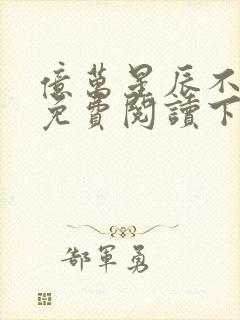 億萬星辰不
免費閱讀下
郜軍勇